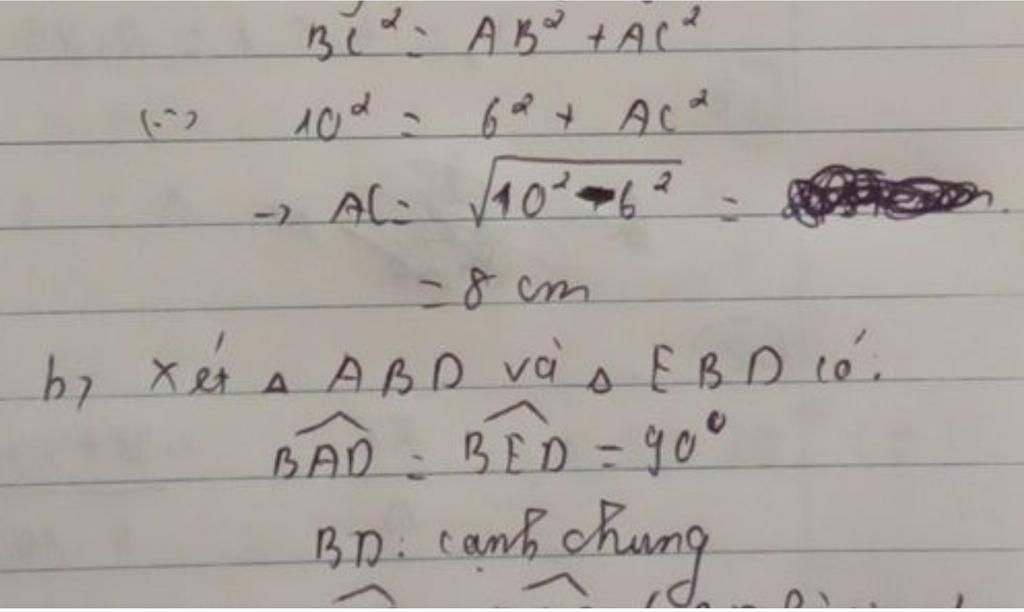 BC² = AB² + AC²
(=) 10² = 6² + AC²
-> AC = √10² - 6² =
= 8 cm
b, Xét △ ABD và △ EBD có:
BAD = BED = 90°
BD: cạnh chung